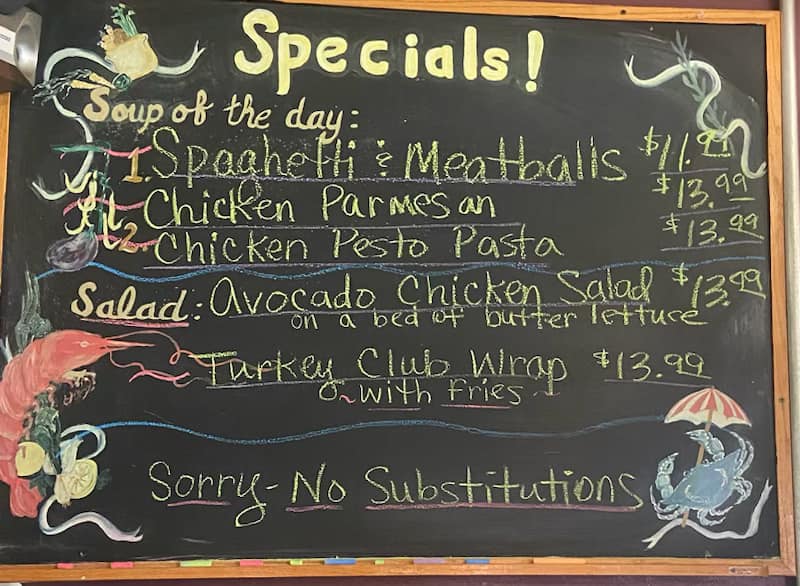 Specials!
Soup of the day:
1. Spaghetti & Meatballs $11.99
Chicken Parmesan $13.99
2. Chicken Pesto Pasta $13.99
Salad: Avocado Chicken Salad $13.99
on a bed of butter lettuce
Turkey Club Wrap $13.99
~with Fries~
Sorry- No Substitutions